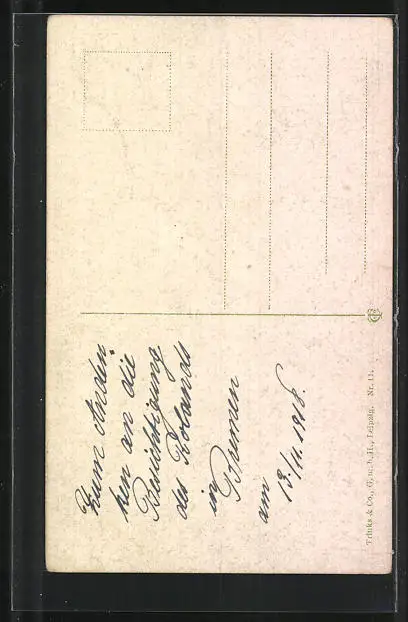 Zum Anden-
ken an die
Besichtigung
des Rolands
in
Bremen
am
13./11. 1918.
Trinks & Co., G. m. b. H., Leipzig. Nr. 11.